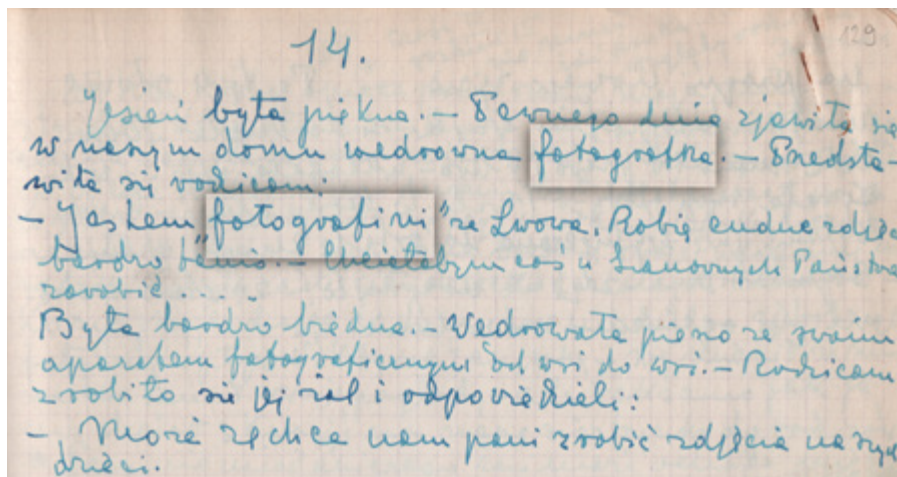 14.
129
Jesień była piękna. – Pewnego dnia zjawiła się
w naszym domu wędrowna fotografka. – Przedsta-
wiła się rodzicom:
– Jestem "fotografini" ze Lwowa. Robię cudne zdjęcia
bardzo tanio. – Chciałabym coś u Szanownych Państwa
zarobić....
Była bardzo biedna. – Wędrowała pieszo ze swoim
aparatem fotograficznym od wsi do wsi. – Rodzicom
zrobiło się jej żal i odpowiedzieli:
– Może zechce nam pani zrobić zdjęcia naszych
dzieci.